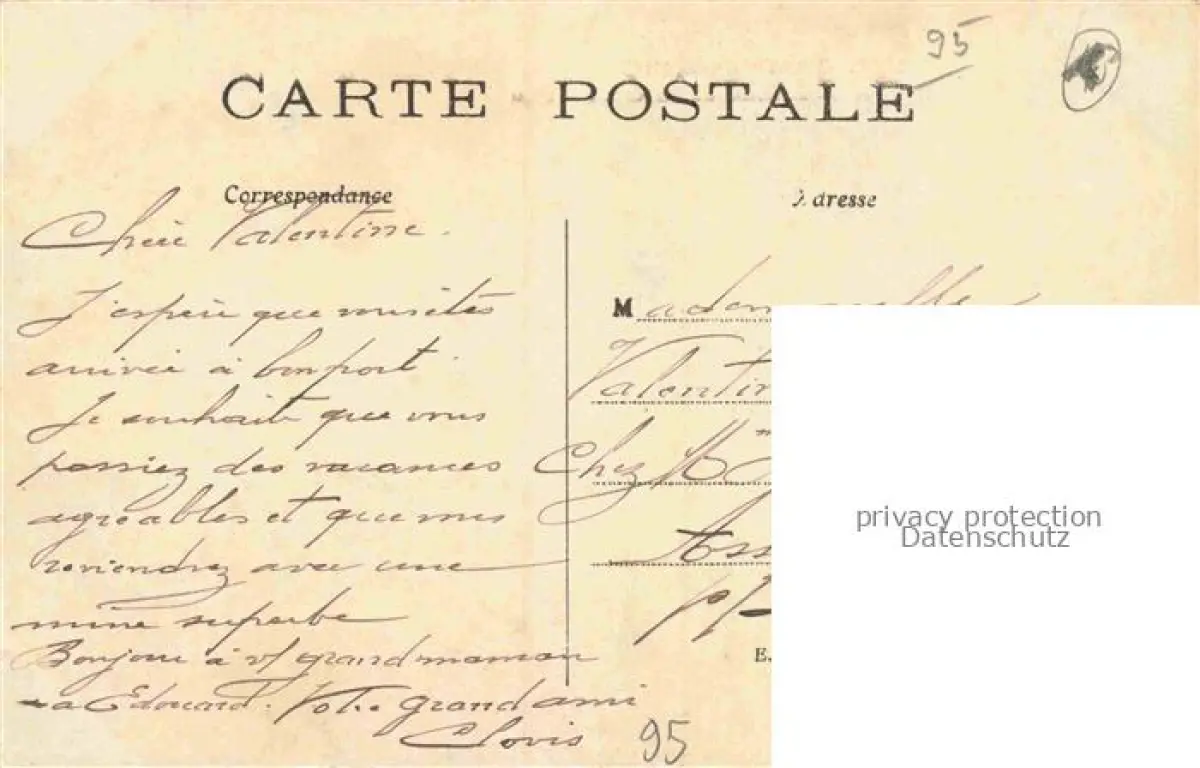 95
CARTE POSTALE
Correspondance
Adresse
Chère Valentine.
J'espère que vous êtes
arrivée à bon port.
Je souhaite que vous
passiez des vacances
agréables et que vous
reviendrez avec une
mine superbe
Bonjour à vt grand maman
à Edouard. Votre grand ami
Clovis
95
Mademoiselle
Valentin
Chez M
Ass
E.
privacy protection
Datenschutz